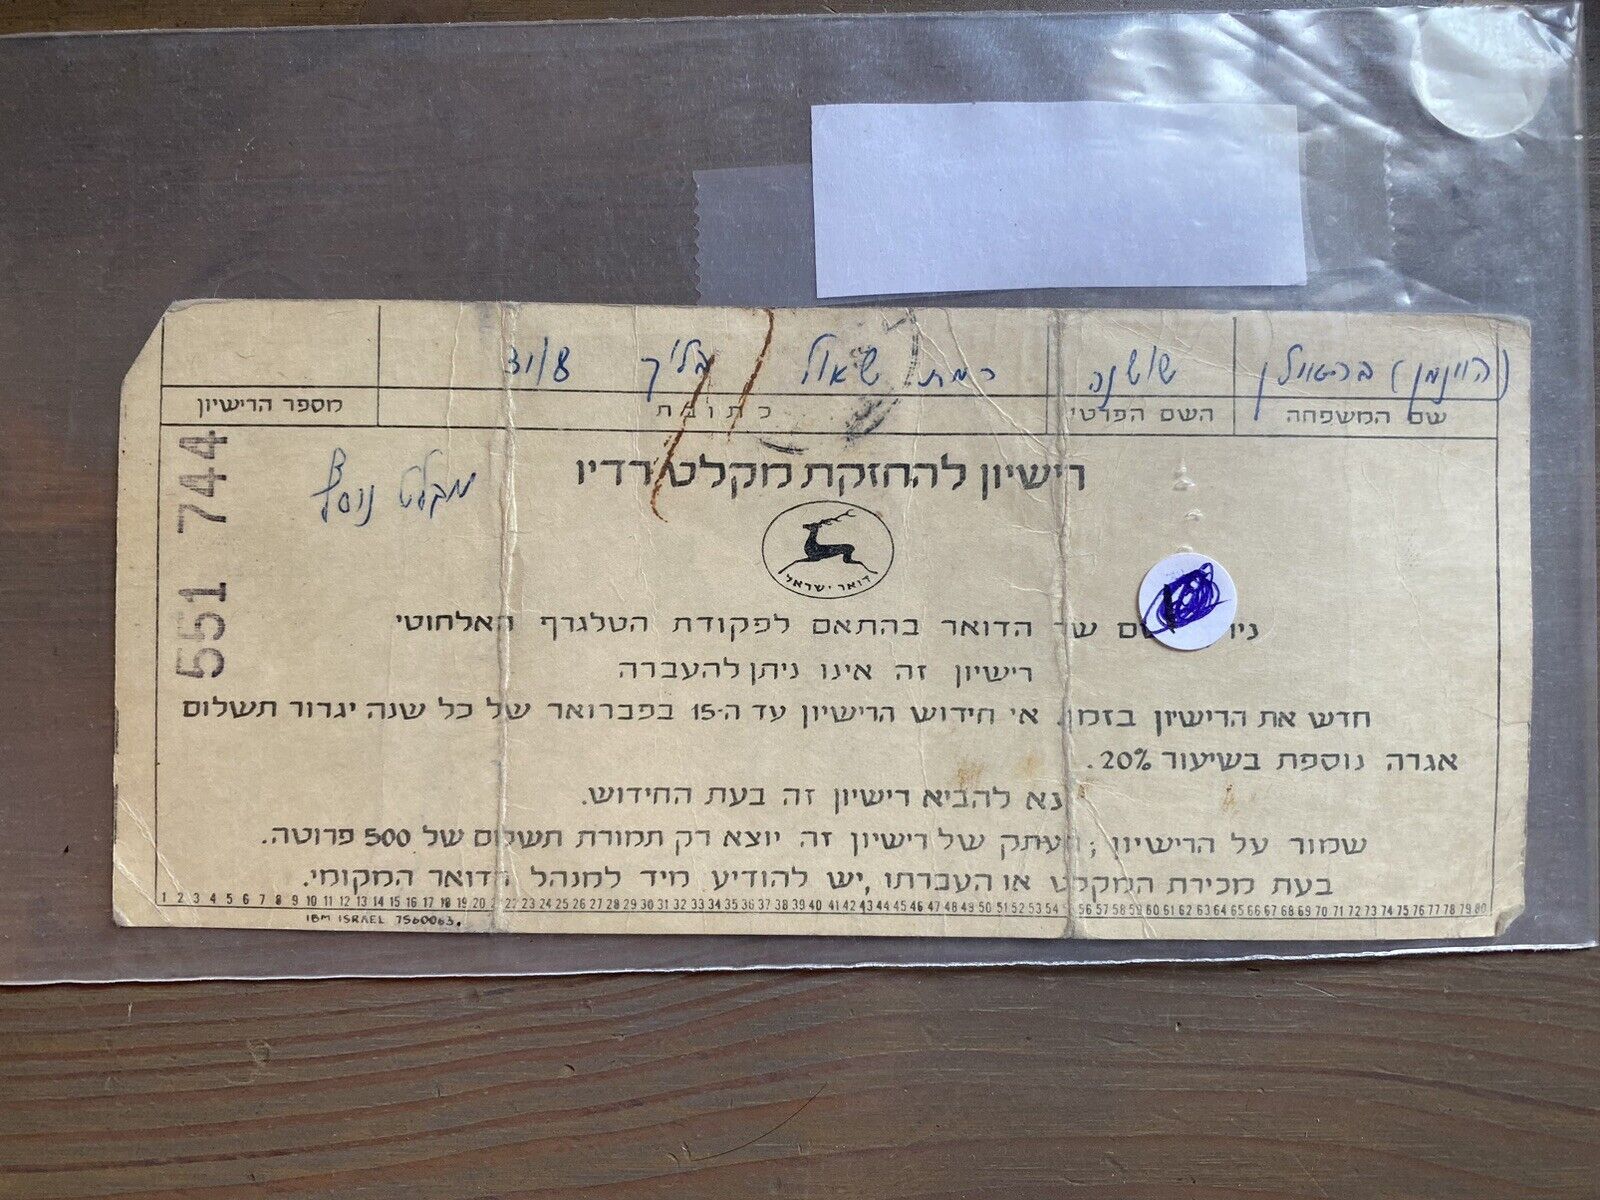 שושנה רמת שאול
שם המשפחה השם הפרטי כתובת מספר הרישיון
רישיון להחזקת מקלט רדיו
מקלט נוסף
551 744
דואר ישראל
של הדואר בהתאם לפקודת הטלגרף האלחוטי
רישיון זה אינו ניתן להעברה
חדש את הרישיון בזמן. אי חידוש הרישיון עד ה-15 בפברואר של כל שנה יגרור תשלום
אגרה נוספת בשיעור 20%.
נא להביא רישיון זה בעת החידוש.
שמור על הרישיון; העתק של רישיון זה יוצא רק תמורת תשלום של 500 פרוטה.
בעת מכירת המקלט או העברתו, יש להודיע מיד למנהל הדואר המקומי.
1 2 3 4 5 6 7 8 9 10 11 12 13 14 15 16 17 18 19 20 21 22 23 24 25 26 27 28 29 30 31 32 33 34 35 36 37 38 39 40 41 42 43 44 45 46 47 48 49 50 51 52 53 54 56 57 58 59 60 61 62 63 64 65 66 67 68 69 70 71 72 73 74 75 76 77 78 79 80
IBM ISRAEL 7560063.